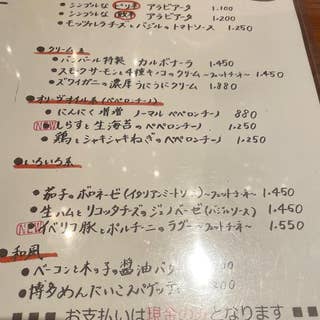 シンプルな アラビアータ 1.100
シンプルな アラビアータ 1.200
モッツァレラチーズとバジルのトマトソース 1.250
● クリーム系
● バンバール特製 カルボナーラ 1.450
● スモークサーモンと4種キノコのクリーム 〜フェットチーネ〜 1.450
● ズワイガニの濃厚うにクリーム 1.880
● オリーヴオイル系(ペペロンチーノ)
● にんにく増増 ノーマルペペロンチーノ 880
NEW しらすと生海苔のペペロンチーノ 1.250
● 鶏とシャキシャキねぎのペペロンチーノ 1.250
● いろいろ系
● 茄子のボロネーゼ(イタリアンミートソース)〜フェットチーネ〜 1.450
● 生ハムとリコッタチーズのジェノベーゼ(バジルソース) 1.450
NEW イベリコ豚とポルチーニのラグー 〜フェットチーネ〜 1.550
● 和風
● ベーコンと木の子の醤油バタ 200
● 博多めんたいこスパゲッティ 200
■■ お支払いは現金のみとなります ■■